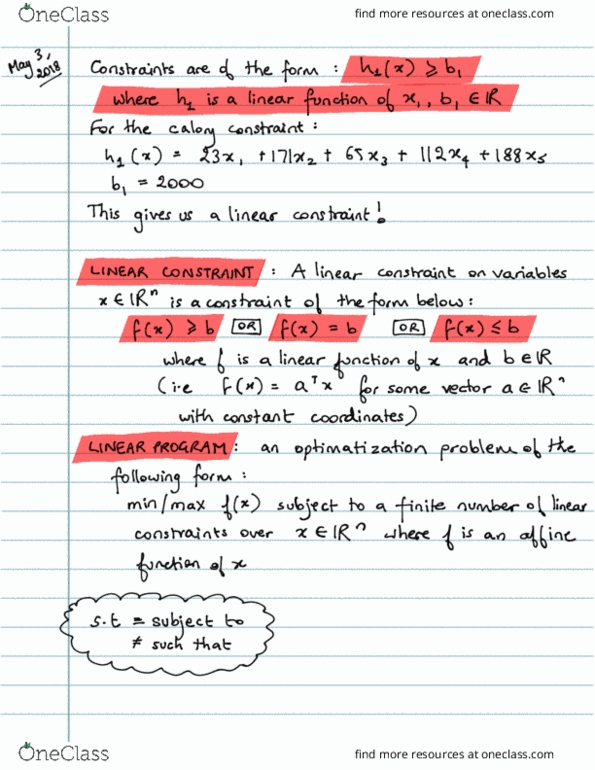 OneClass
find more resources at oneclass.com
May 3, 2018
Constraints are of the form : h₁(x) ⩾ b₁
where h₁ is a linear function of x₁, b₁ ∈ ℝ
For the calory constraint :
h₁(x) = 23x₁ + 171x₂ + 65x₃ + 112x₄ + 188x₅
b₁ = 2000
This gives us a linear constraint!
LINEAR CONSTRAINT : A linear constraint on variables
x ∈ ℝⁿ is a constraint of the form below:
f(x) ⩾ b OR f(x) = b OR f(x) ≤ b
where f is a linear function of x and b ∈ ℝ
(i.e f(x) = aᵀx for some vector a ∈ ℝⁿ
with constant coordinates)
LINEAR PROGRAM : an optimatization problem of the
following form :
min/max f(x) subject to a finite number of linear
constraints over x ∈ ℝⁿ where f is an affine
function of x
s.t = subject to
≠ such that
OneClass
find more resources at oneclass.com